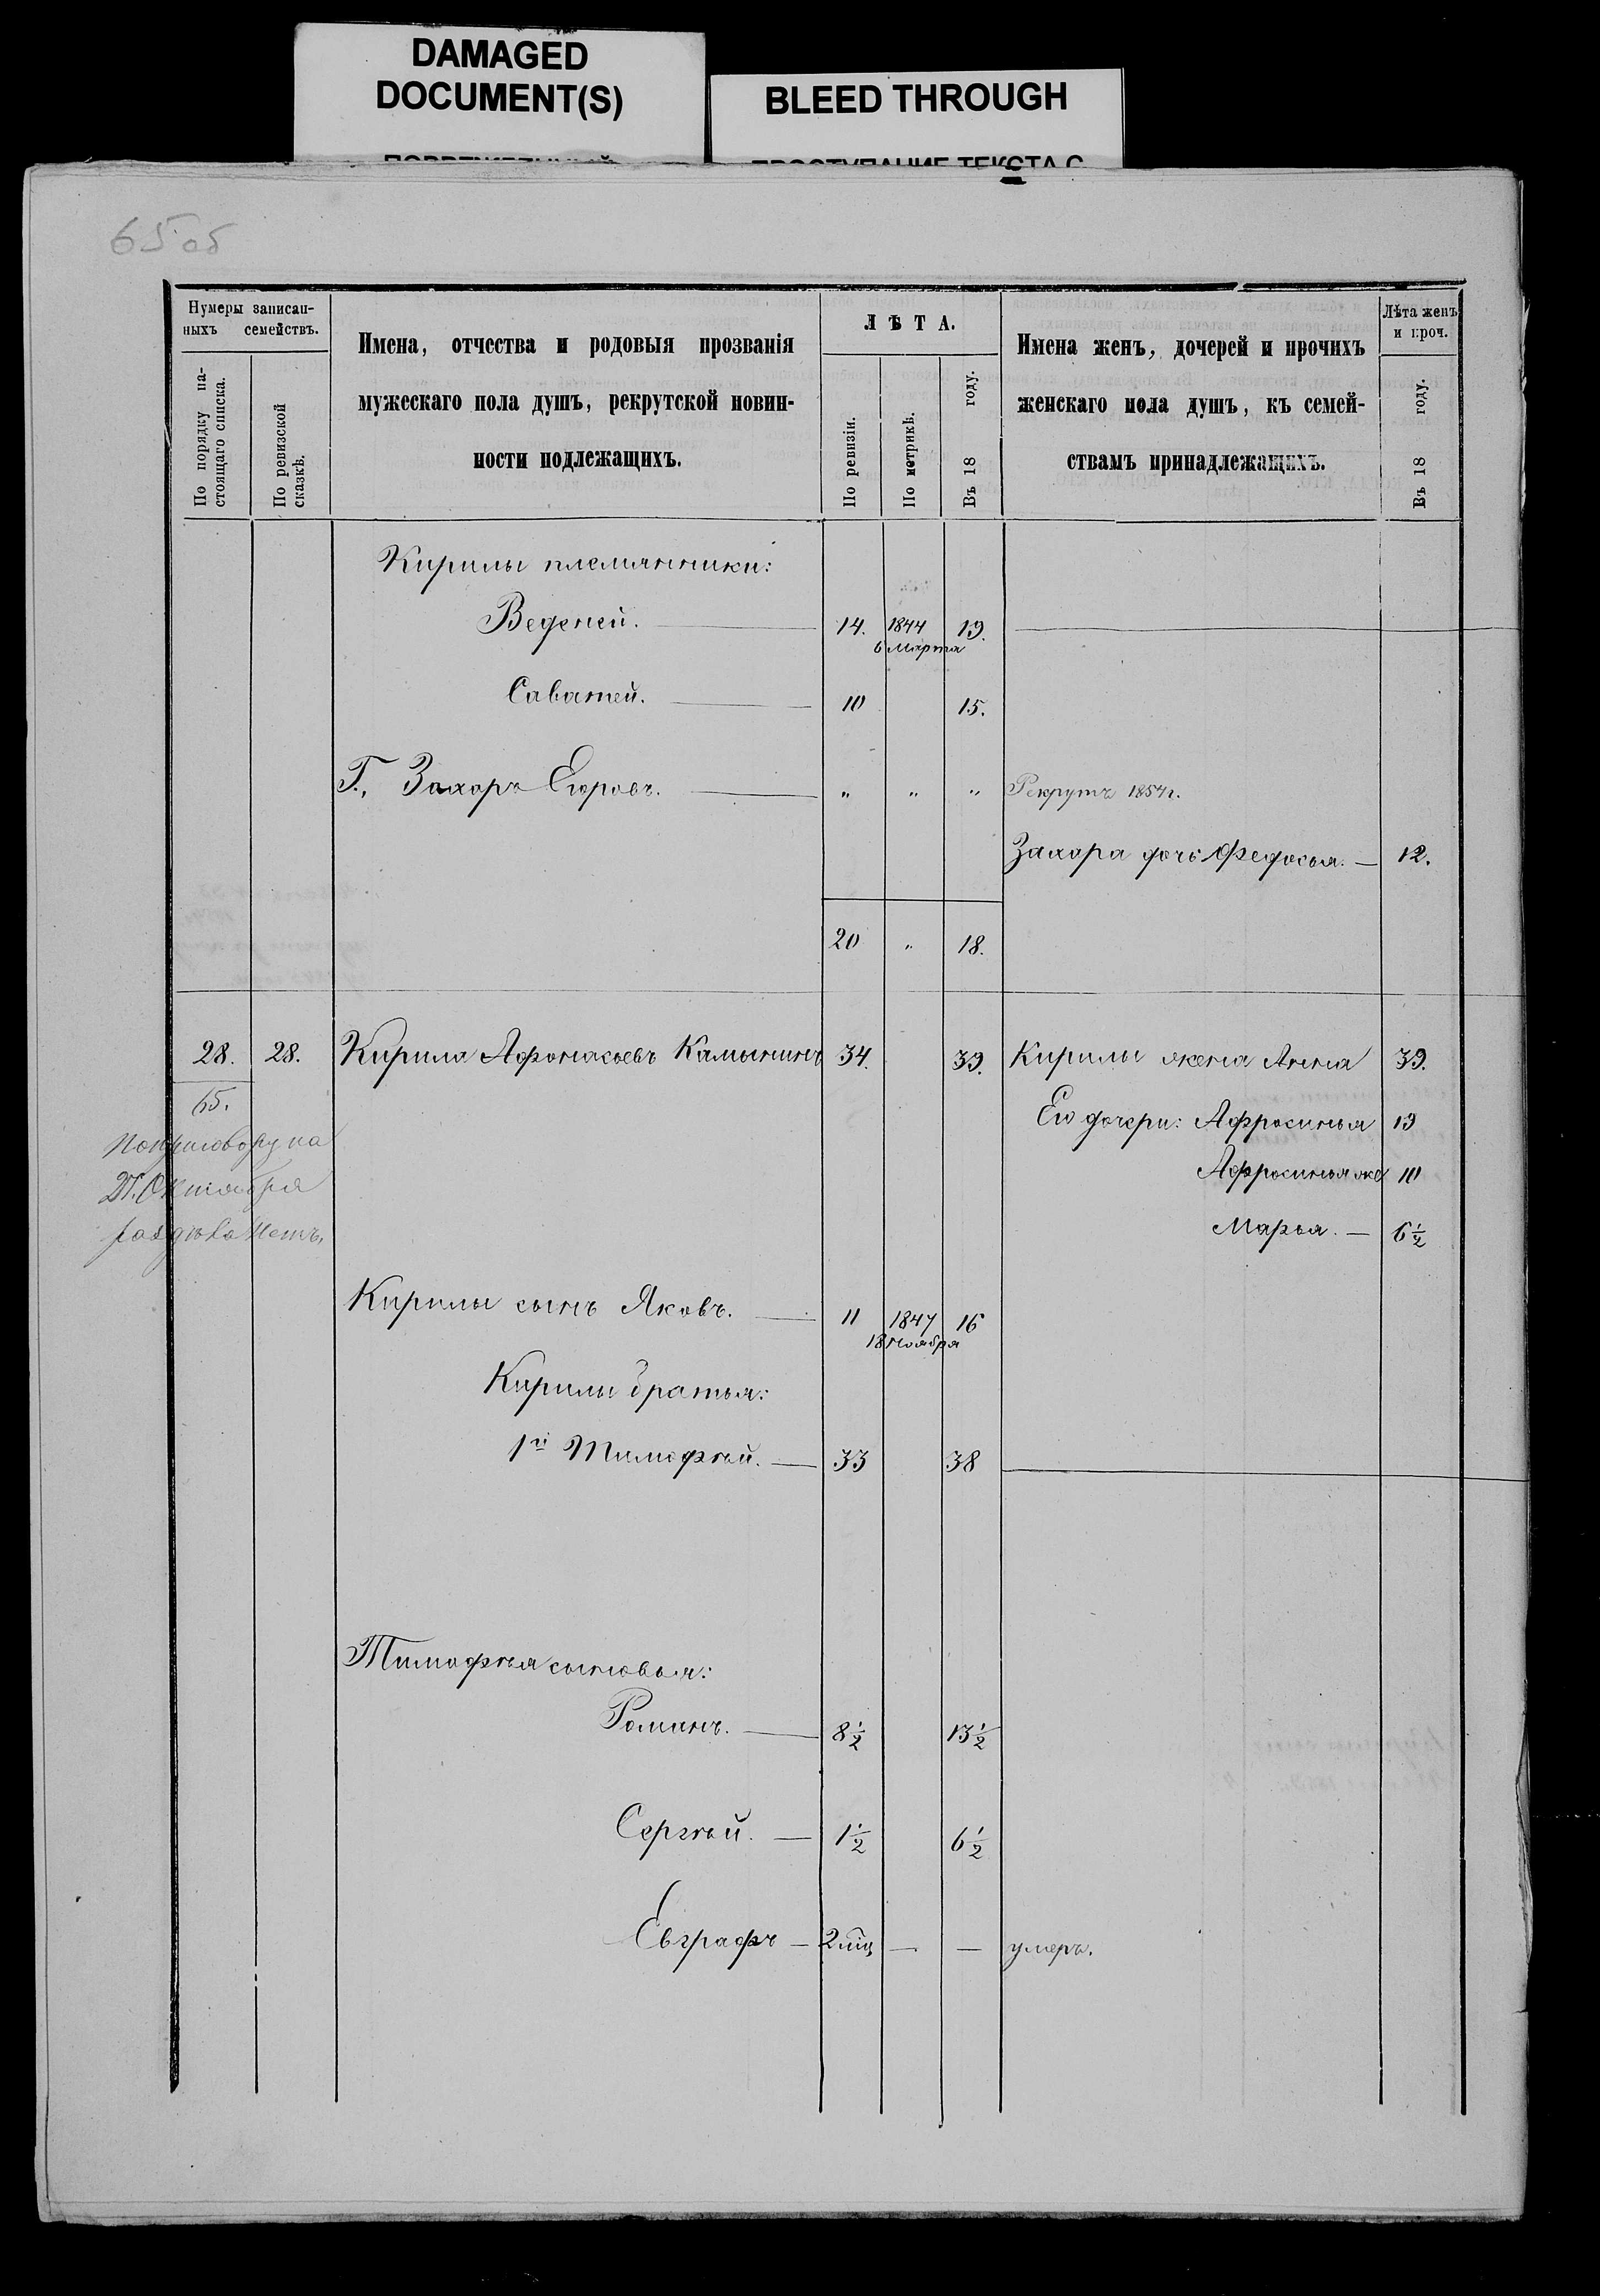 DAMAGED
DOCUMENT(S)
BLEED THROUGH
65 об
Нумеры записан-
ныхъ семействъ.
По порядку на-
стоящаго списка.
По ревизской
сказкѣ.
Имена, отчества и родовыя прозванія
мужескаго пола душъ, рекрутской повин-
ности подлежащихъ.
ЛѢТА.
По ревизіи.
По метрикѣ.
Въ 18 году.
Имена женъ, дочерей и прочихъ
женскаго пола душъ, къ семей-
ствамъ принадлежащихъ.
Лѣта женъ
и проч.
Въ 18 году.
Кирилы племянники:
Веденей. 14. 1844 19.
6 марта
Саватей. 10 15.
Г., Захаръ Егоровъ. " " " Рекрутъ 1854 г.
Захара дочь Федосья. — 12.
20 " 18.
28. 28. Кирила Афонасьевъ Камынинъ 34. 39. Кирилы жена Анна 39.
65. Его дочери: Афросинья 19
По приговору на
Афросинья же 10
27. Октября
раздѣла нетъ.
Марья. — 6 1/2
Кирилы сынъ Яковъ. — 11 1847 16
18 ноября
Кирилы братья:
1й Тимофѣй. — 33 38
Тимофѣя сыновья:
Романъ. — 8 1/2 13 1/2
Сергѣй. — 1 1/2 6 1/2
Евграфъ — 2 мѣц — — умеръ.